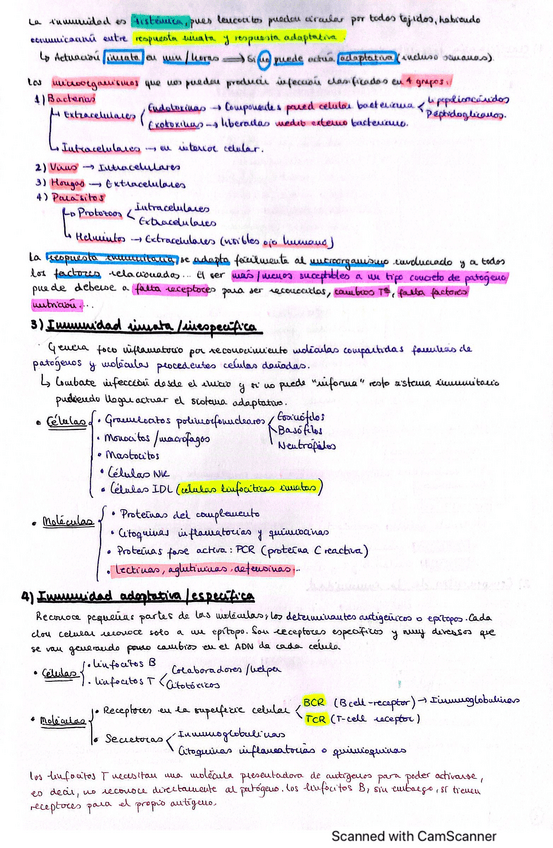 La inmunidad es sistémica, pues leucocitos pueden circular por todos tejidos, habiendo
comunicación entre respuesta innata y respuesta adaptativa.
↳ Actuación innata en min/horas ⟹ Si no puede actúa adaptativa (incluso semanas).
Los microorganismos que nos pueden producir infección clasificados en 4 grupos:
1) Bacterias
Extracelulares
Endotoxinas → Componentes pared celular bacteriana
Lipopolisacáridos
Peptidoglicanos.
Exotoxinas → liberadas medio externo bacteriano.
Intracelulares → en interior celular.
2) Virus → Intracelulares
3) Hongos → Extracelulares
4) Parásitos
Protozoos
Intracelulares
Extracelulares
Helmintos → Extracelulares (visibles ojo humano)
La respuesta inmunitaria, se adapta fácilmente al microorganismo involucrado y a todos
los factores relacionados... El ser más/menos suceptibles a un tipo concreto de patógeno
puede deberse a falta receptores para ser reconocidos, cambios Tª, falta factores
nutrición...
3) Inmunidad innata/inespecífica
Genera foco inflamatorio por reconocimiento moléculas compartidas familias de
patógenos y moléculas procedentes células dañadas.
↳ Combate infección desde el inicio y si no puede "informa" resto sistema inmunitario
pudiendo llegar actuar el sistema adaptativo.
• Células
• Granulocitos polimorfonucleares
Eosinófilos
Basófilos
Neutrófilos
• Monocitos/macrófagos
• Mastocitos
• Células NK
• Células IDL (células linfocíticas innatas)
• Moléculas
• Proteínas del complemento
• Citoquinas inflamatorias y quimiocinas
• Proteínas fase activa: PCR (proteína C reactiva)
• Lectinas, aglutininas, defensinas...
4) Inmunidad adaptativa/específica
Reconoce pequeñas partes de las moléculas, los determinantes antigénicos o epítopos. Cada
clon celular reconoce solo a un epítopo. Son receptores específicos y muy diversos que
se van generando cambios en el ADN de cada célula.
• Células
• Linfocitos B
• Linfocitos T
Colaboradores/helper
Citotóxicos
• Moléculas
• Receptores en la superficie celular
BCR (B cell-receptor) → Inmunoglobulinas
TCR (T-cell receptor)
• Secretoras
Inmunoglobulinas
Citoquinas inflamatorias o quimioquinas
Los linfocitos T necesitan una molécula presentadora de antígenos para poder activarse,
es decir, no reconoce directamente al patógeno. Los linfocitos B, sin embargo, sí tienen
receptores para el propio antígeno.
Scanned with CamScanner